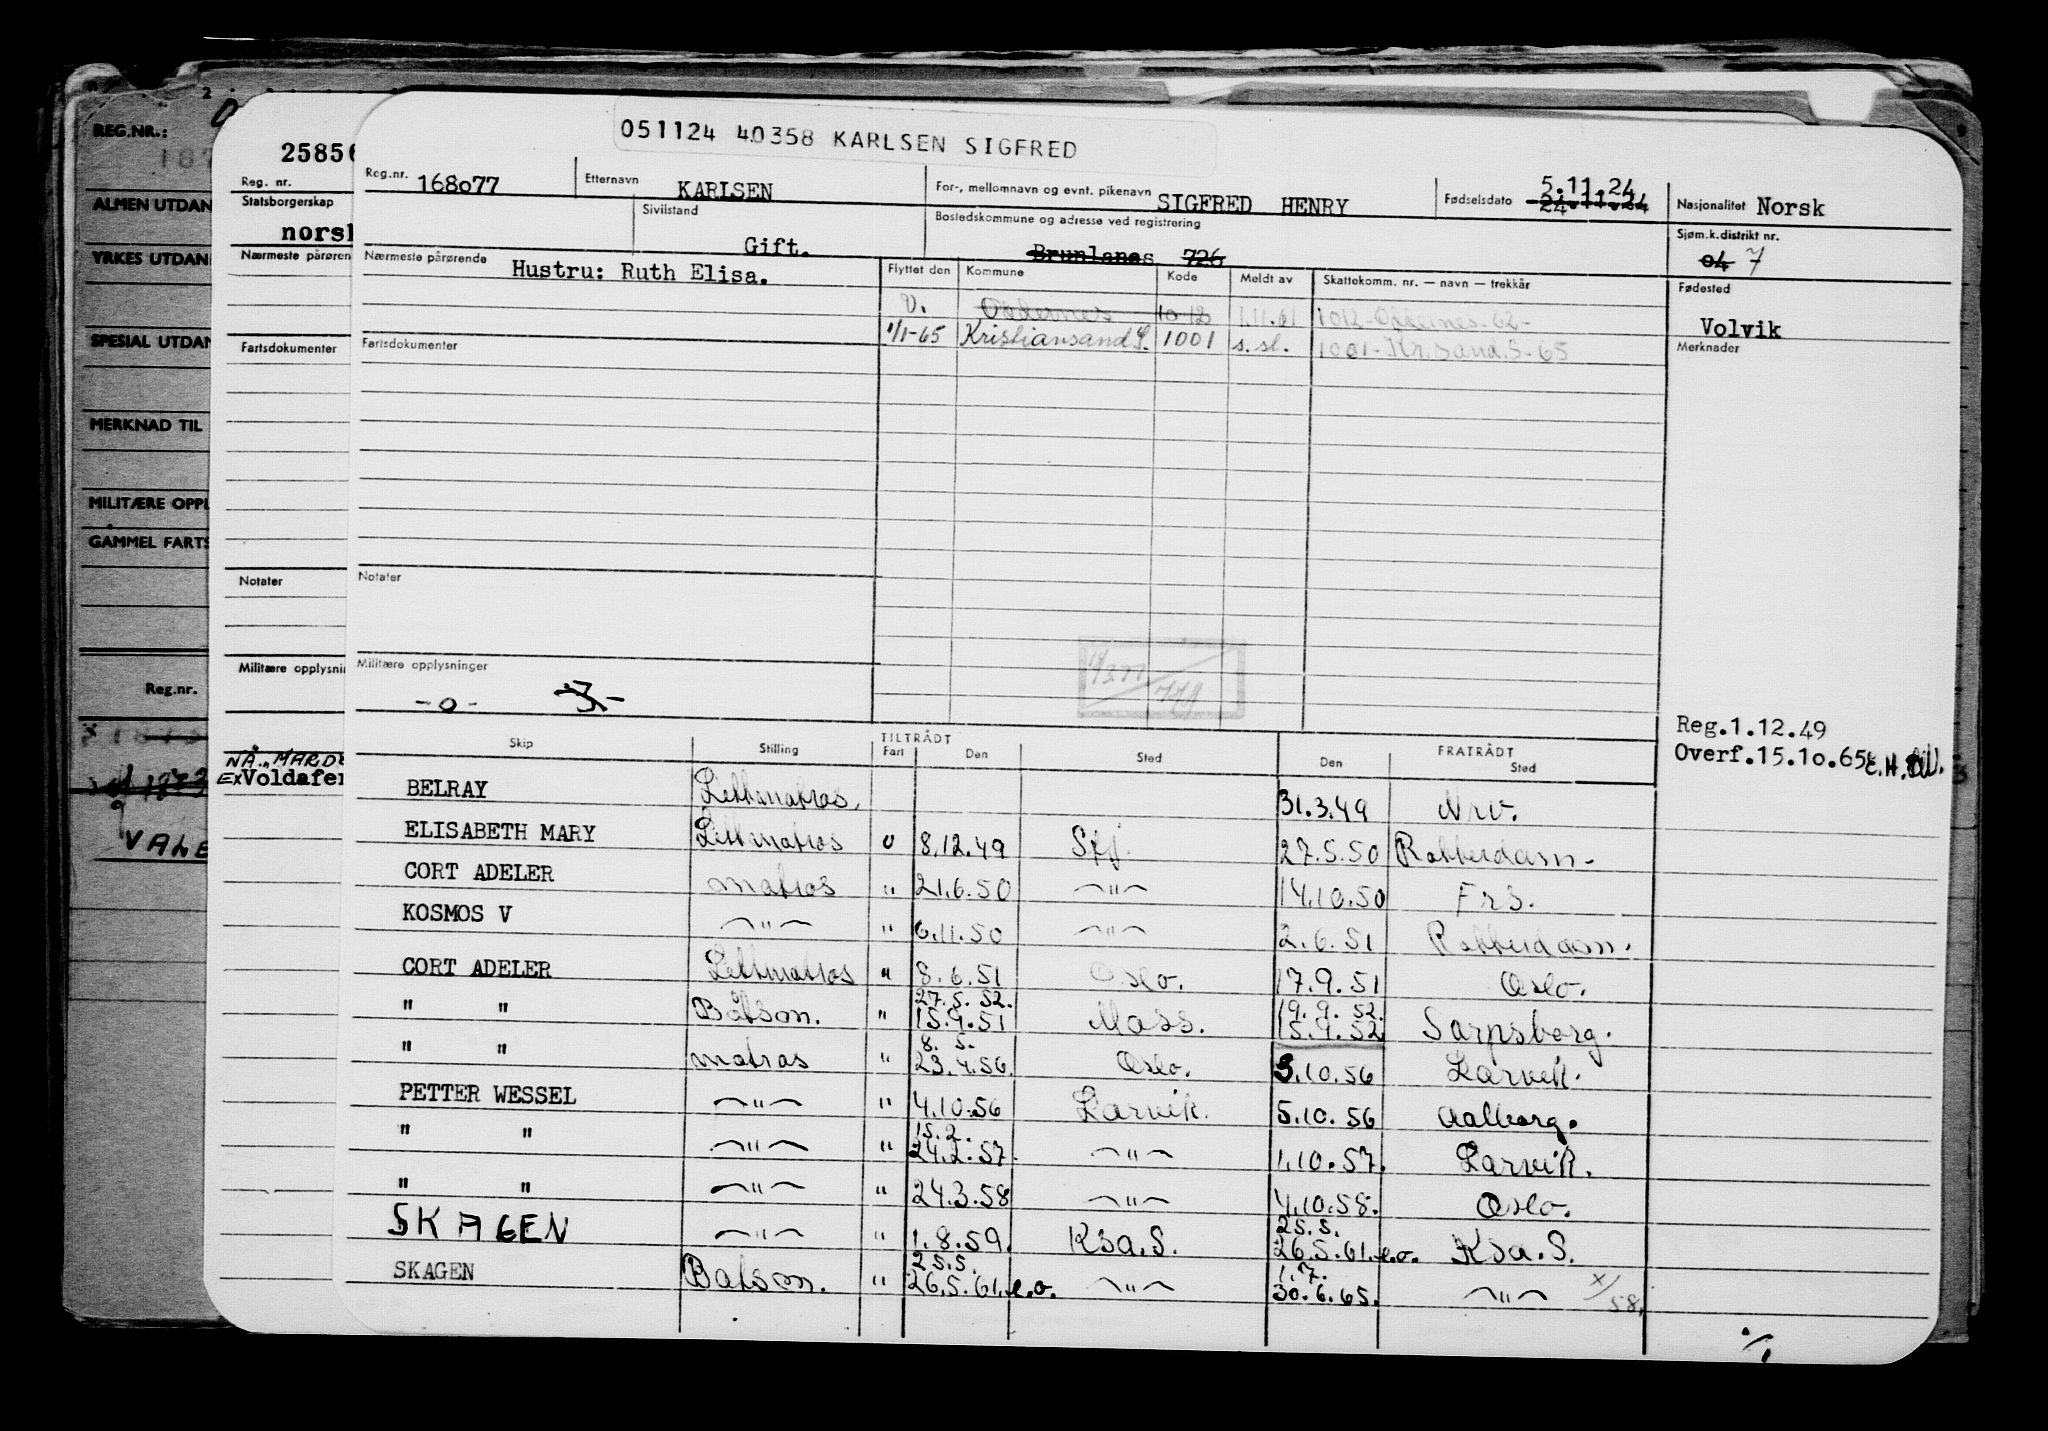 051124 40358 KARLSEN SIGFRED
Reg.nr. 168o77 Etternavn KARLSEN For-, mellomnavn og evnt. pikenavn SIGFRED HENRY Fødselsdato 5.11.24 24.11.24 Nasjonalitet Norsk
Sivilstand Gift. Bostedskommune og adresse ved registrering Brunlanes 726 Sjøm.k.distrikt nr. 04 7
Nærmeste pårørende Hustru: Ruth Elisa. Flyttet den Kommune Kode Meldt av Skattekomm. nr. — navn — trekkår Fødested Volvik
V. Oddernes 1012 1.11.61 1012-Oddernes-62-
1/1-65 Kristiansand S. 1001 s.sl. 1001-Kr.sand.S-65
Fartsdokumenter Merknader
Notater
Militære opplysninger
-o-
Reg.1.12.49
Overf.15.1o.65
Skip Stilling TILTRÅDT Fart Den Sted FRATRÅDT Den Sted
BELRAY Lettmatros 31.3.49 Nrv.
ELISABETH MARY Lettmatros U 8.12.49 Sfj. 27.5.50 Rotterdam.
CORT ADELER matros " 21.6.50 —"— 14.10.50 Frs.
KOSMOS V —"— " 6.11.50 —"— 2.6.51 Rotterdam.
CORT ADELER Lettmatros " 8.6.51 Oslo. 17.9.51 Oslo.
27.5.52. 19.9.52.
" " Båtsm. " 15.9.51 Moss. 15.9.52 Sarpsborg.
8. 5.
" " matros " 23.4.56. Oslo. 3.10.56 Larvik.
PETTER WESSEL —"— " 4.10.56 Larvik. 5.10.56 Aalborg.
15.2.
" " —"— " 24.2.57. —"— 1.10.57. Larvik.
" " —"— " 24.3.58 —"— 4.10.58. Oslo.
25.5.
SKAGEN —"— " 1.8.59. Ksa.S. 26.5.61.e.o. Ksa.S.
25.5. 1.7.
SKAGEN Båtsm. " 26.5.61.e.o. —"— 30.6.65. —"— x/58.
25856
Reg. nr.
Statsborgerskap
norsk
Nærmeste pårøren
Fartsdokumenter
Notater
Militære opplysnin
NÅ "MARD
Ex Voldafer
REG.NR.:
187
ALMEN UTDAN
YRKES UTDAN
SPESIAL UTDAN
MERKNAD TIL
MILITÆRE OPPL
GAMMEL FARTS
Reg.nr.
VALE